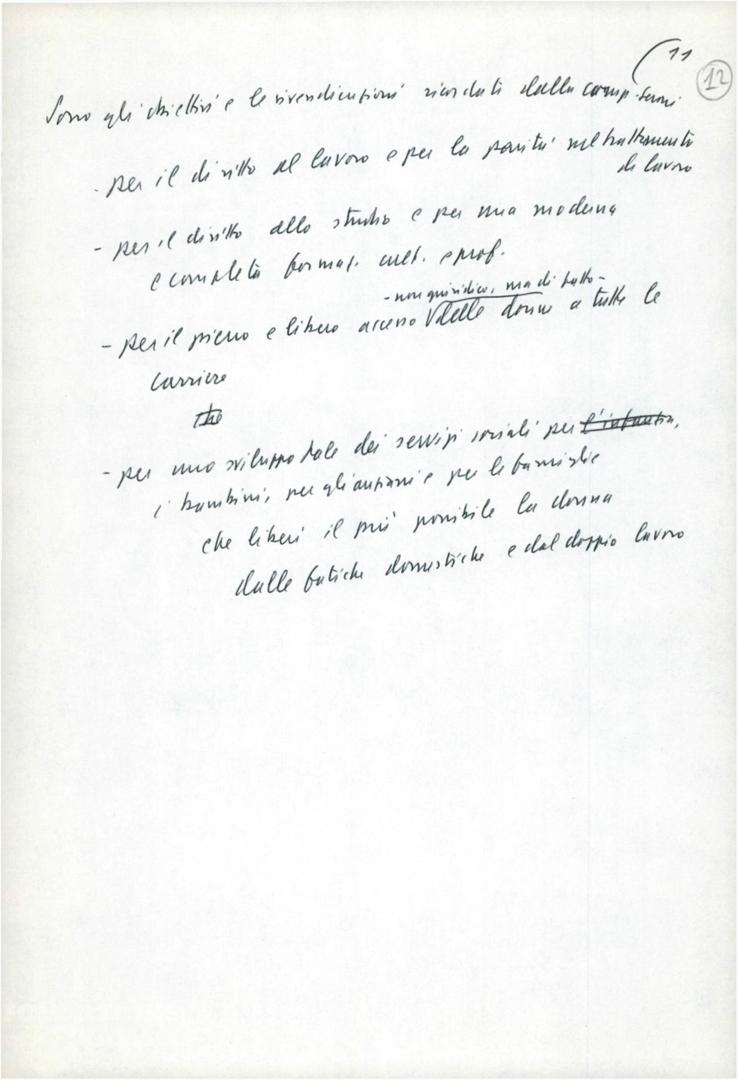 11
12
Sono gli obiettivi e le rivendicazioni ricordati dalla comp. Seroni
- per il diritto al lavoro e per la parità nel trattamento
di lavoro
- per il diritto allo studio e per una moderna
e completa formaz. cult. e prof.
- non giuridico, ma di fatto -
- per il pieno e libero accesso delle donne a tutte le
carriere
che
- per uno sviluppo tale dei servizi sociali per l'infanzia,
i bambini, per gli anziani e per le famiglie
che liberi il più possibile la donna
dalle fatiche domestiche e dal doppio lavoro